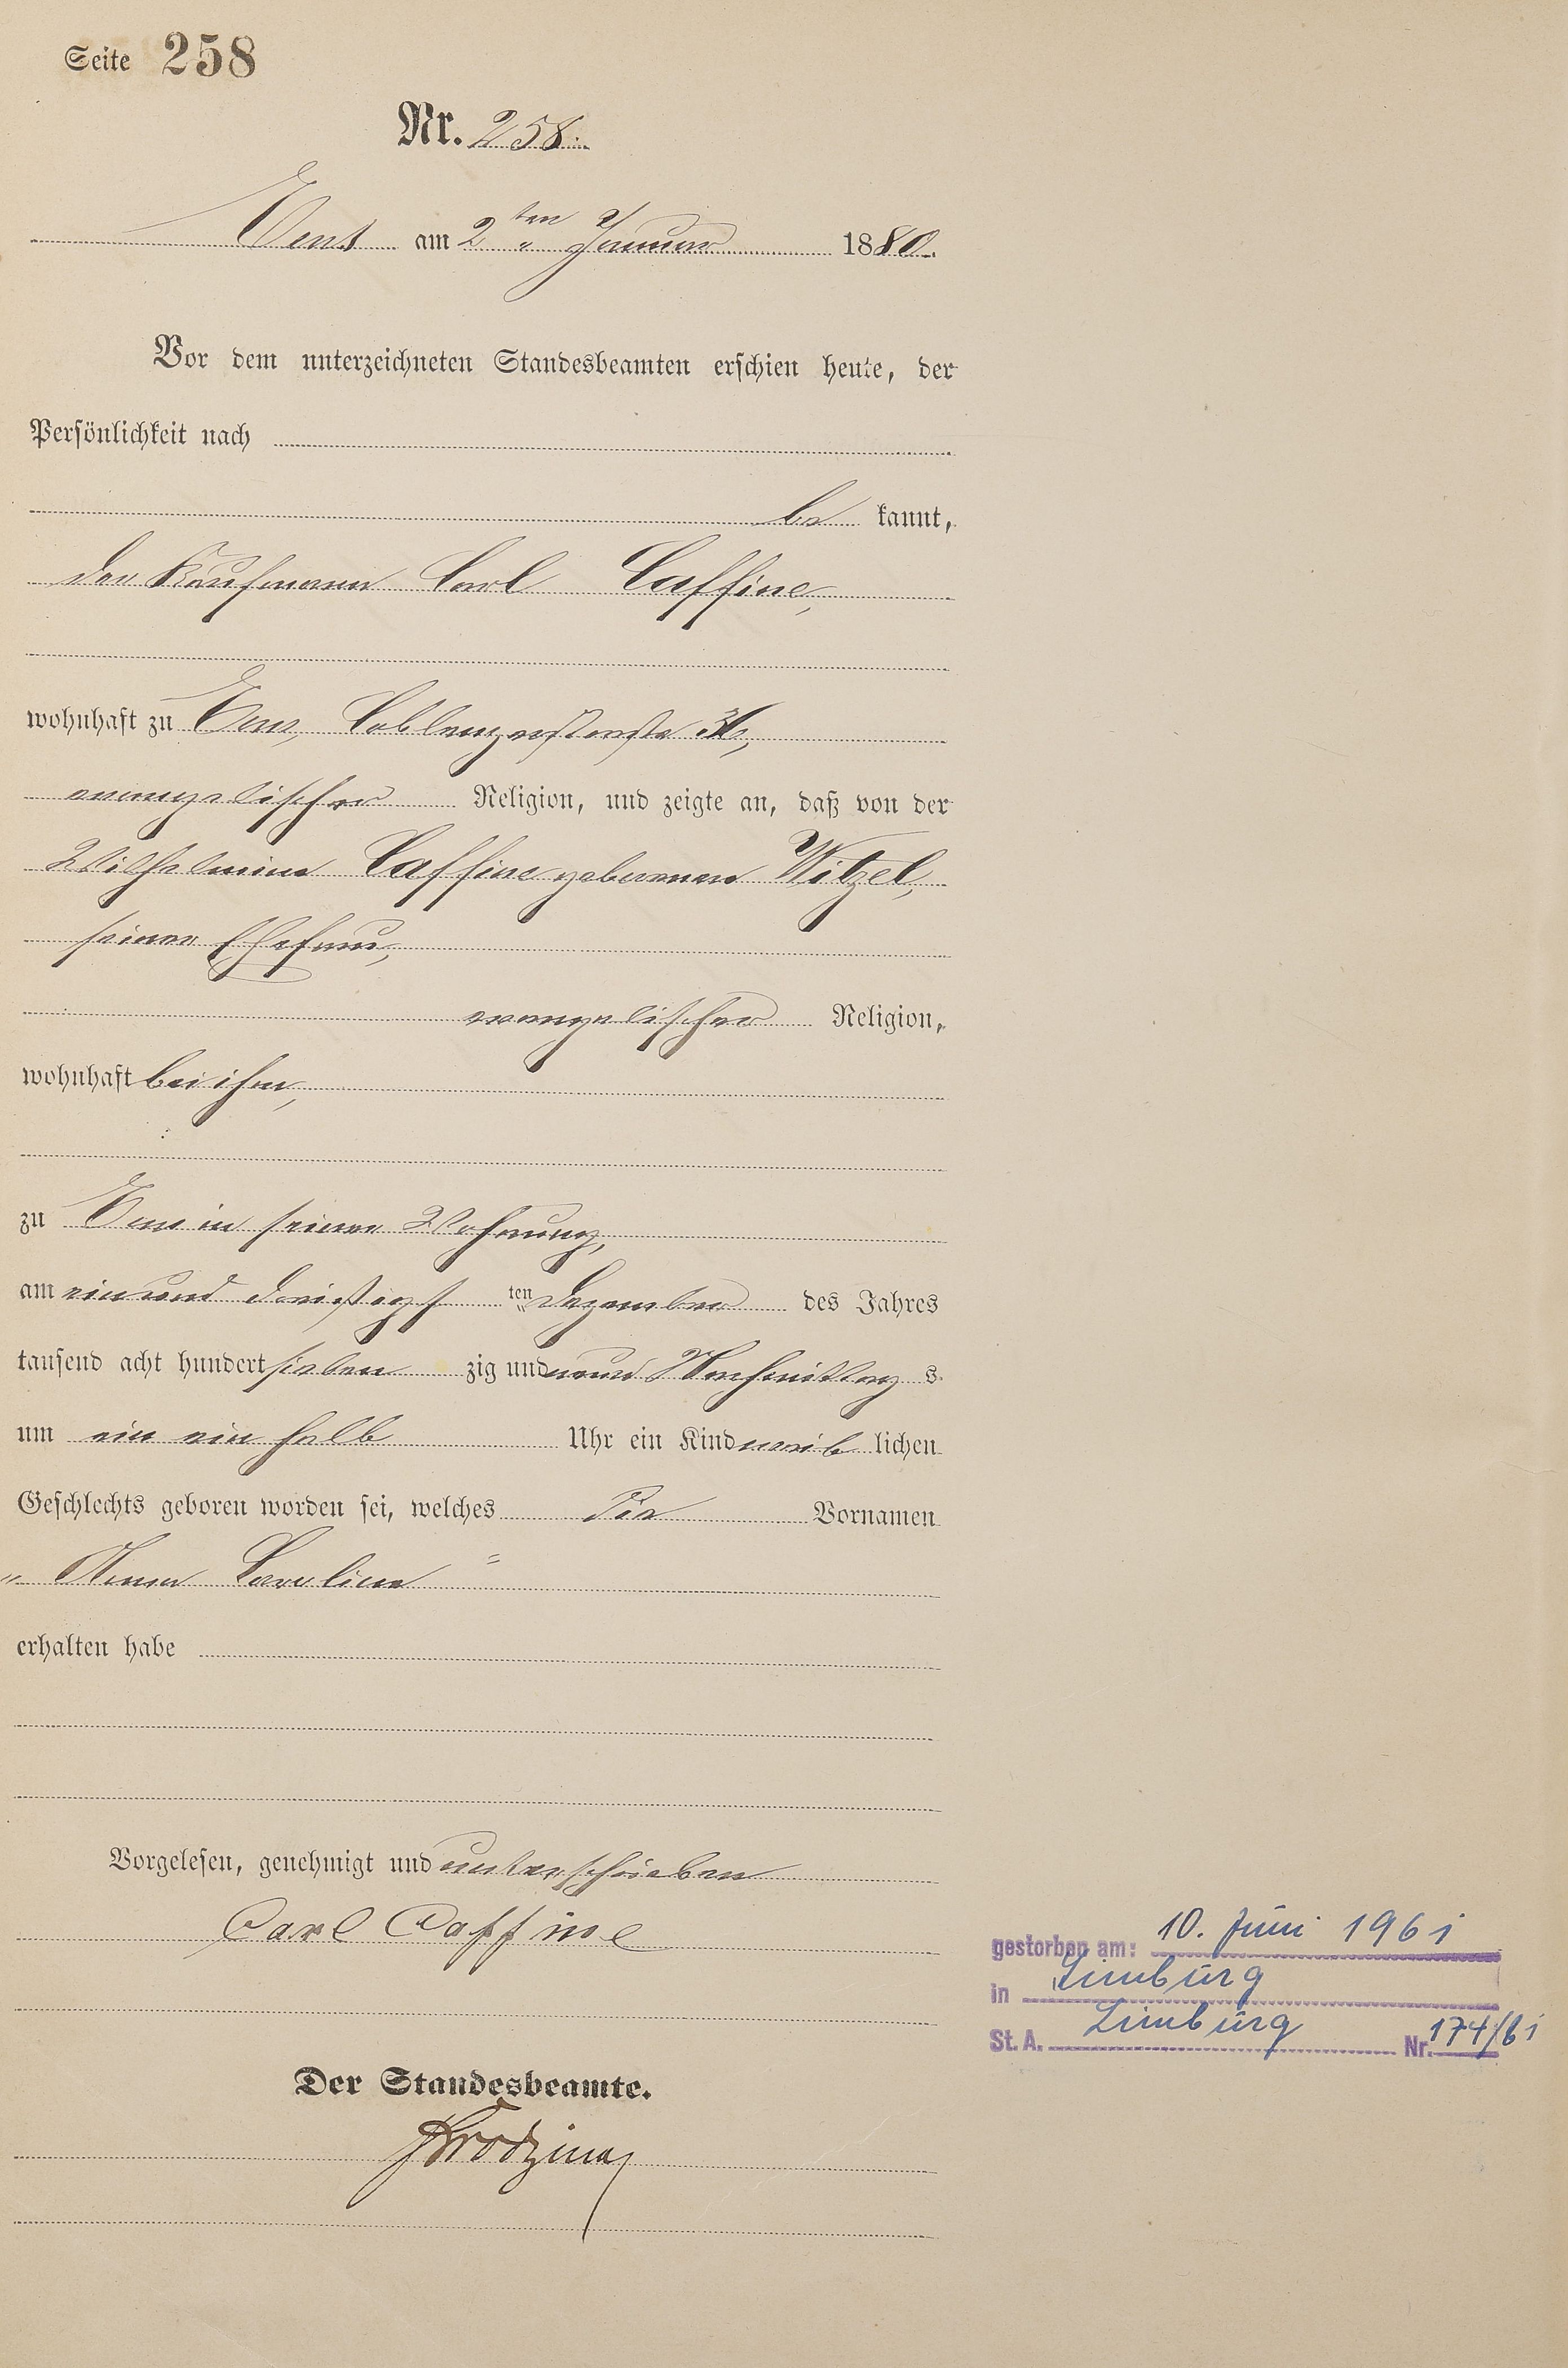 Seite 258
Nr. 258.
Ems am 2ten Januar 1880.
Vor dem unterzeichneten Standesbeamten erschien heute, der
Persönlichkeit nach
be kannt,
der Kaufmann Carl Caffine,
wohnhaft zu Ems, Coblenzerstraße
evangelischer Religion, und zeigte an, daß von der
Wilhelmine Caffine geborenen Witzel,
seiner Ehefrau,
evangelischer Religion,
wohnhaft bei ihm,
zu Ems in seiner Wohnung,
am ein und dreißigs ten Dezember des Jahres
tausend acht hundert sieben zig und neun Nachmittag s
um ein ein halb Uhr ein Kind weib lichen
Geschlechts geboren worden sei, welches die Vornamen
„ Anna Caroline "
erhalten habe
Vorgelesen, genehmigt und unterschrieben
Carl Caffine
Der Standesbeamte.
gestorben am: 10. Juni 1961
in Limburg
St. A. Limburg Nr. 174/61